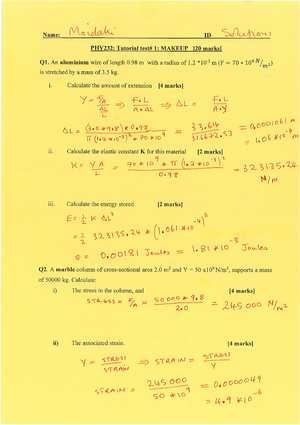 Name: Moidaki ID Solutions
PHY232: Tutorial test# 1: MAKEUP [20 marks]
Q1. An aluminium wire of length 0.98 m with a radius of 1.2 *10⁻³ m (Y = 70 * 10⁹ N/m²)
is stretched by a mass of 3.5 kg.
i. Calculate the amount of extension [4 marks]
Y = F/A / ΔL/L ⇒ F·L / A·ΔL ⇒ ΔL = F·L / A·Y
ΔL = (3.5*9.8)*0.98 / π(1.2*10⁻³)² * 70*10⁹ = 33.614 / 316672.53 = 0.0001061 m
= 1.06 * 10⁻⁴ m
ii. Calculate the elastic constant K for this material [2 marks]
K = YA / L = 70*10⁹ * π(1.2*10⁻³)² / 0.98 = 323135.24
N/m
iii. Calculate the energy stored [2 marks]
E = ½ K ΔL²
= ½ 323135.24 * (1.061*10⁻⁴)²
E = 0.00181 Joules = 1.81 * 10⁻³ Joules
Q2. A marble column of cross-sectional area 2.0 m² and Y = 50 x10⁹ N/m², supports a mass
of 50000 kg. Calculate:
i) The stress in the column, and [4 marks]
STRESS = F/A = 50000 * 9.8 / 2.0 = 245000 N/m²
ii) The associated strain. [4 marks]
Y = STRESS / STRAIN ⇒ STRAIN = STRESS / Y
STRAIN = 245000 / 50 * 10⁹ = 0.0000049
= 4.9 * 10⁻⁶